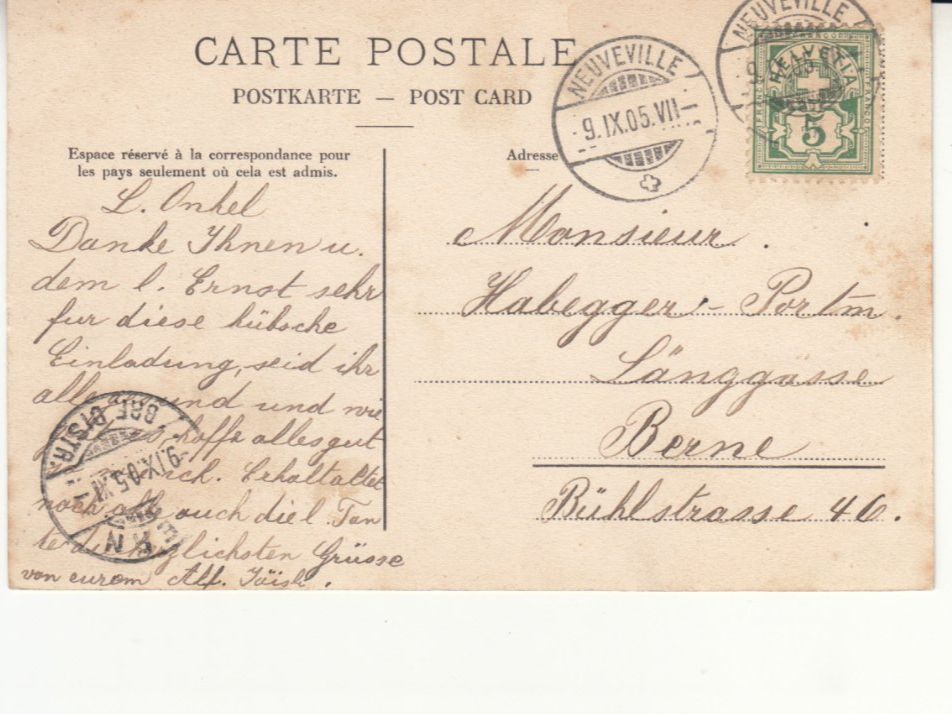 CARTE POSTALE
POSTKARTE — POST CARD
Espace réservé à la correspondance pour
les pays seulement où cela est admis.
Adresse
NEUVEVILLE
9.IX.05.VII
NEUVEVILLE
HELVETIA
5
L. Onkel
Danke Ihnen u.
dem l. Ernst sehr
fur diese hübsche
Einladung, seid ihr
alle und und wie
hoffe alles gut
Erhaltet
noch auch die l. Tan
te Grüsse
von eurem Alf.
BRF. DISTR.
9.IX.05.
Monsieur
Habegger - Portm.
Länggasse
Berne
Bühlstrasse 46.